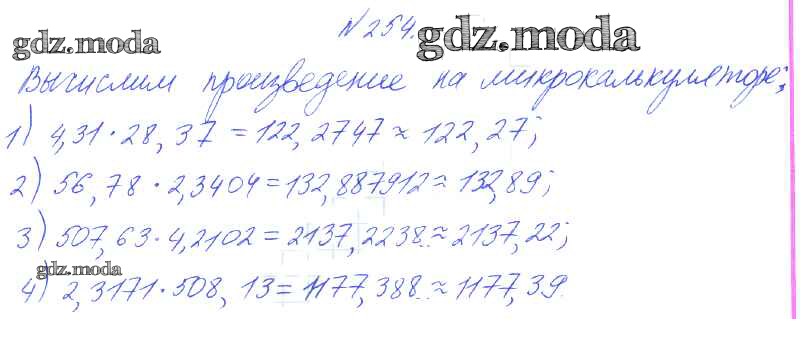 №254.
gdz.moda gdz.moda
Вычислим произведение на микрокалькуляторе:
1) 4,31·28,37=122,2747≈122,27;
2) 56,78·2,3404=132,887912≈132,89;
3) 507,63·4,2102=2137,2238..≈2137,22;
gdz.moda
4) 2,3171·508,13=1177,388..≈1177,39.